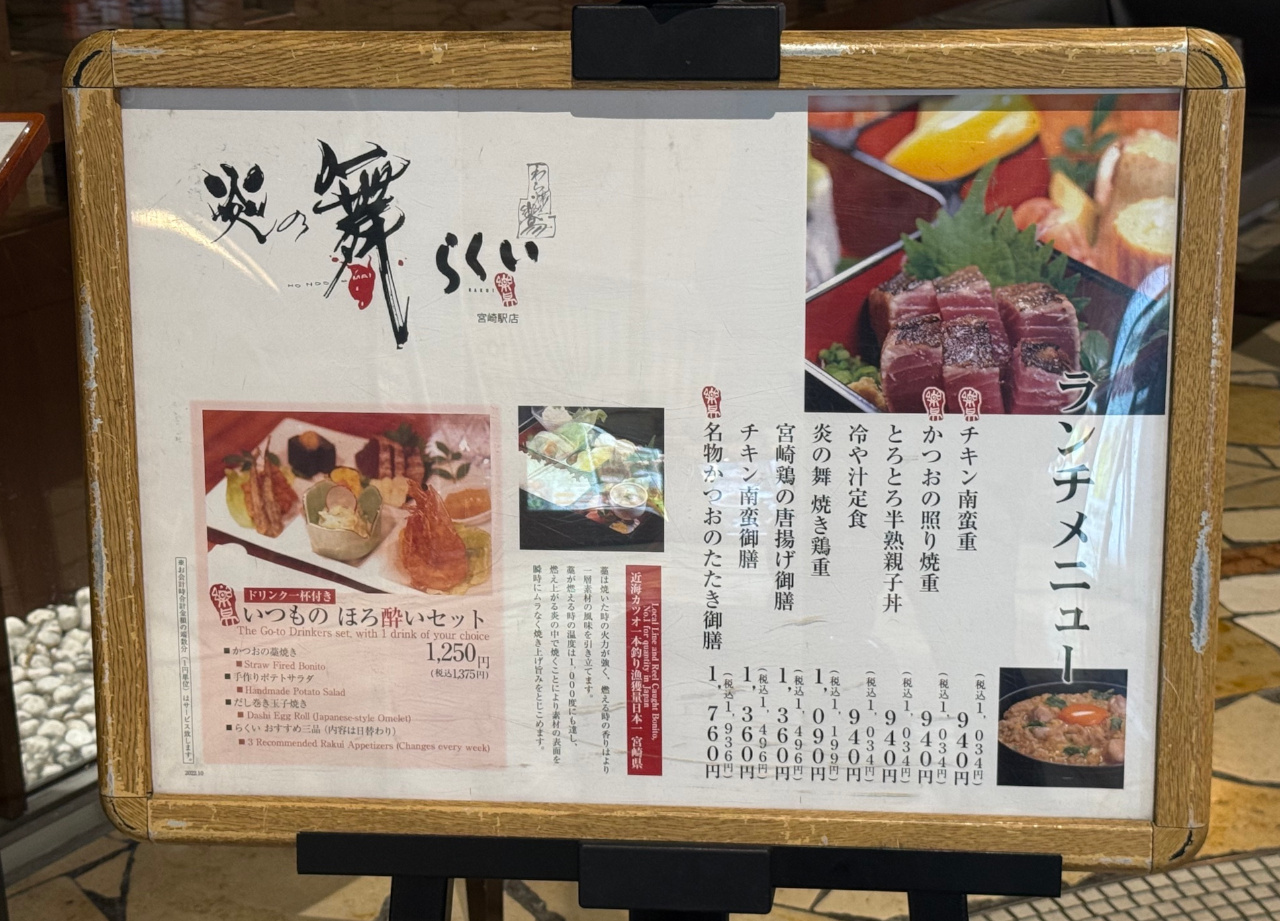 炎の舞
HONOO MAI
らくい
RAKUI
樂亰
宮崎駅店
ランチメニュー
チキン南蛮重
940円
(税込1,034円)
かつおの照り焼重
940円
(税込1,034円)
とろとろ半熟親子丼
940円
(税込1,034円)
冷や汁定食
940円
(税込1,034円)
炎の舞 焼き鶏重
1,090円
(税込1,199円)
宮崎鶏の唐揚げ御膳
1,360円
(税込1,496円)
チキン南蛮御膳
1,360円
(税込1,496円)
名物かつおのたたき御膳
1,760円
(税込1,936円)
Local Line and Reel Caught Bonito,
No.1 for quantity in Japan
近海カツオ一本釣り漁獲量日本一 宮崎県
藁は焼いた時の火力が強く、燃える時の香りはより
一層素材の風味を引き立てます。
藁が燃える時の温度は1,000度にも達し、
燃え上がる炎の中で焼くことにより素材の表面を
瞬時にムラなく焼き上げ旨みをとじこめます。
ドリンク一杯付き
いつもの ほろ酔いセット
The Go-to Drinkers set, with 1 drink of your choice
1,250円
(税込1,375円)
■かつおの藁焼き
■Straw Fired Bonito
■手作りポテトサラダ
■Handmade Potato Salad
■だし巻き玉子焼き
■Dashi Egg Roll (Japanese-style Omelet)
■らくい おすすめ三品(内容は日替わり)
■3 Recommended Rakui Appetizers (Changes every week)
※お会計時合計金額の端数分(1円単位)はサービス致します。
2022.10